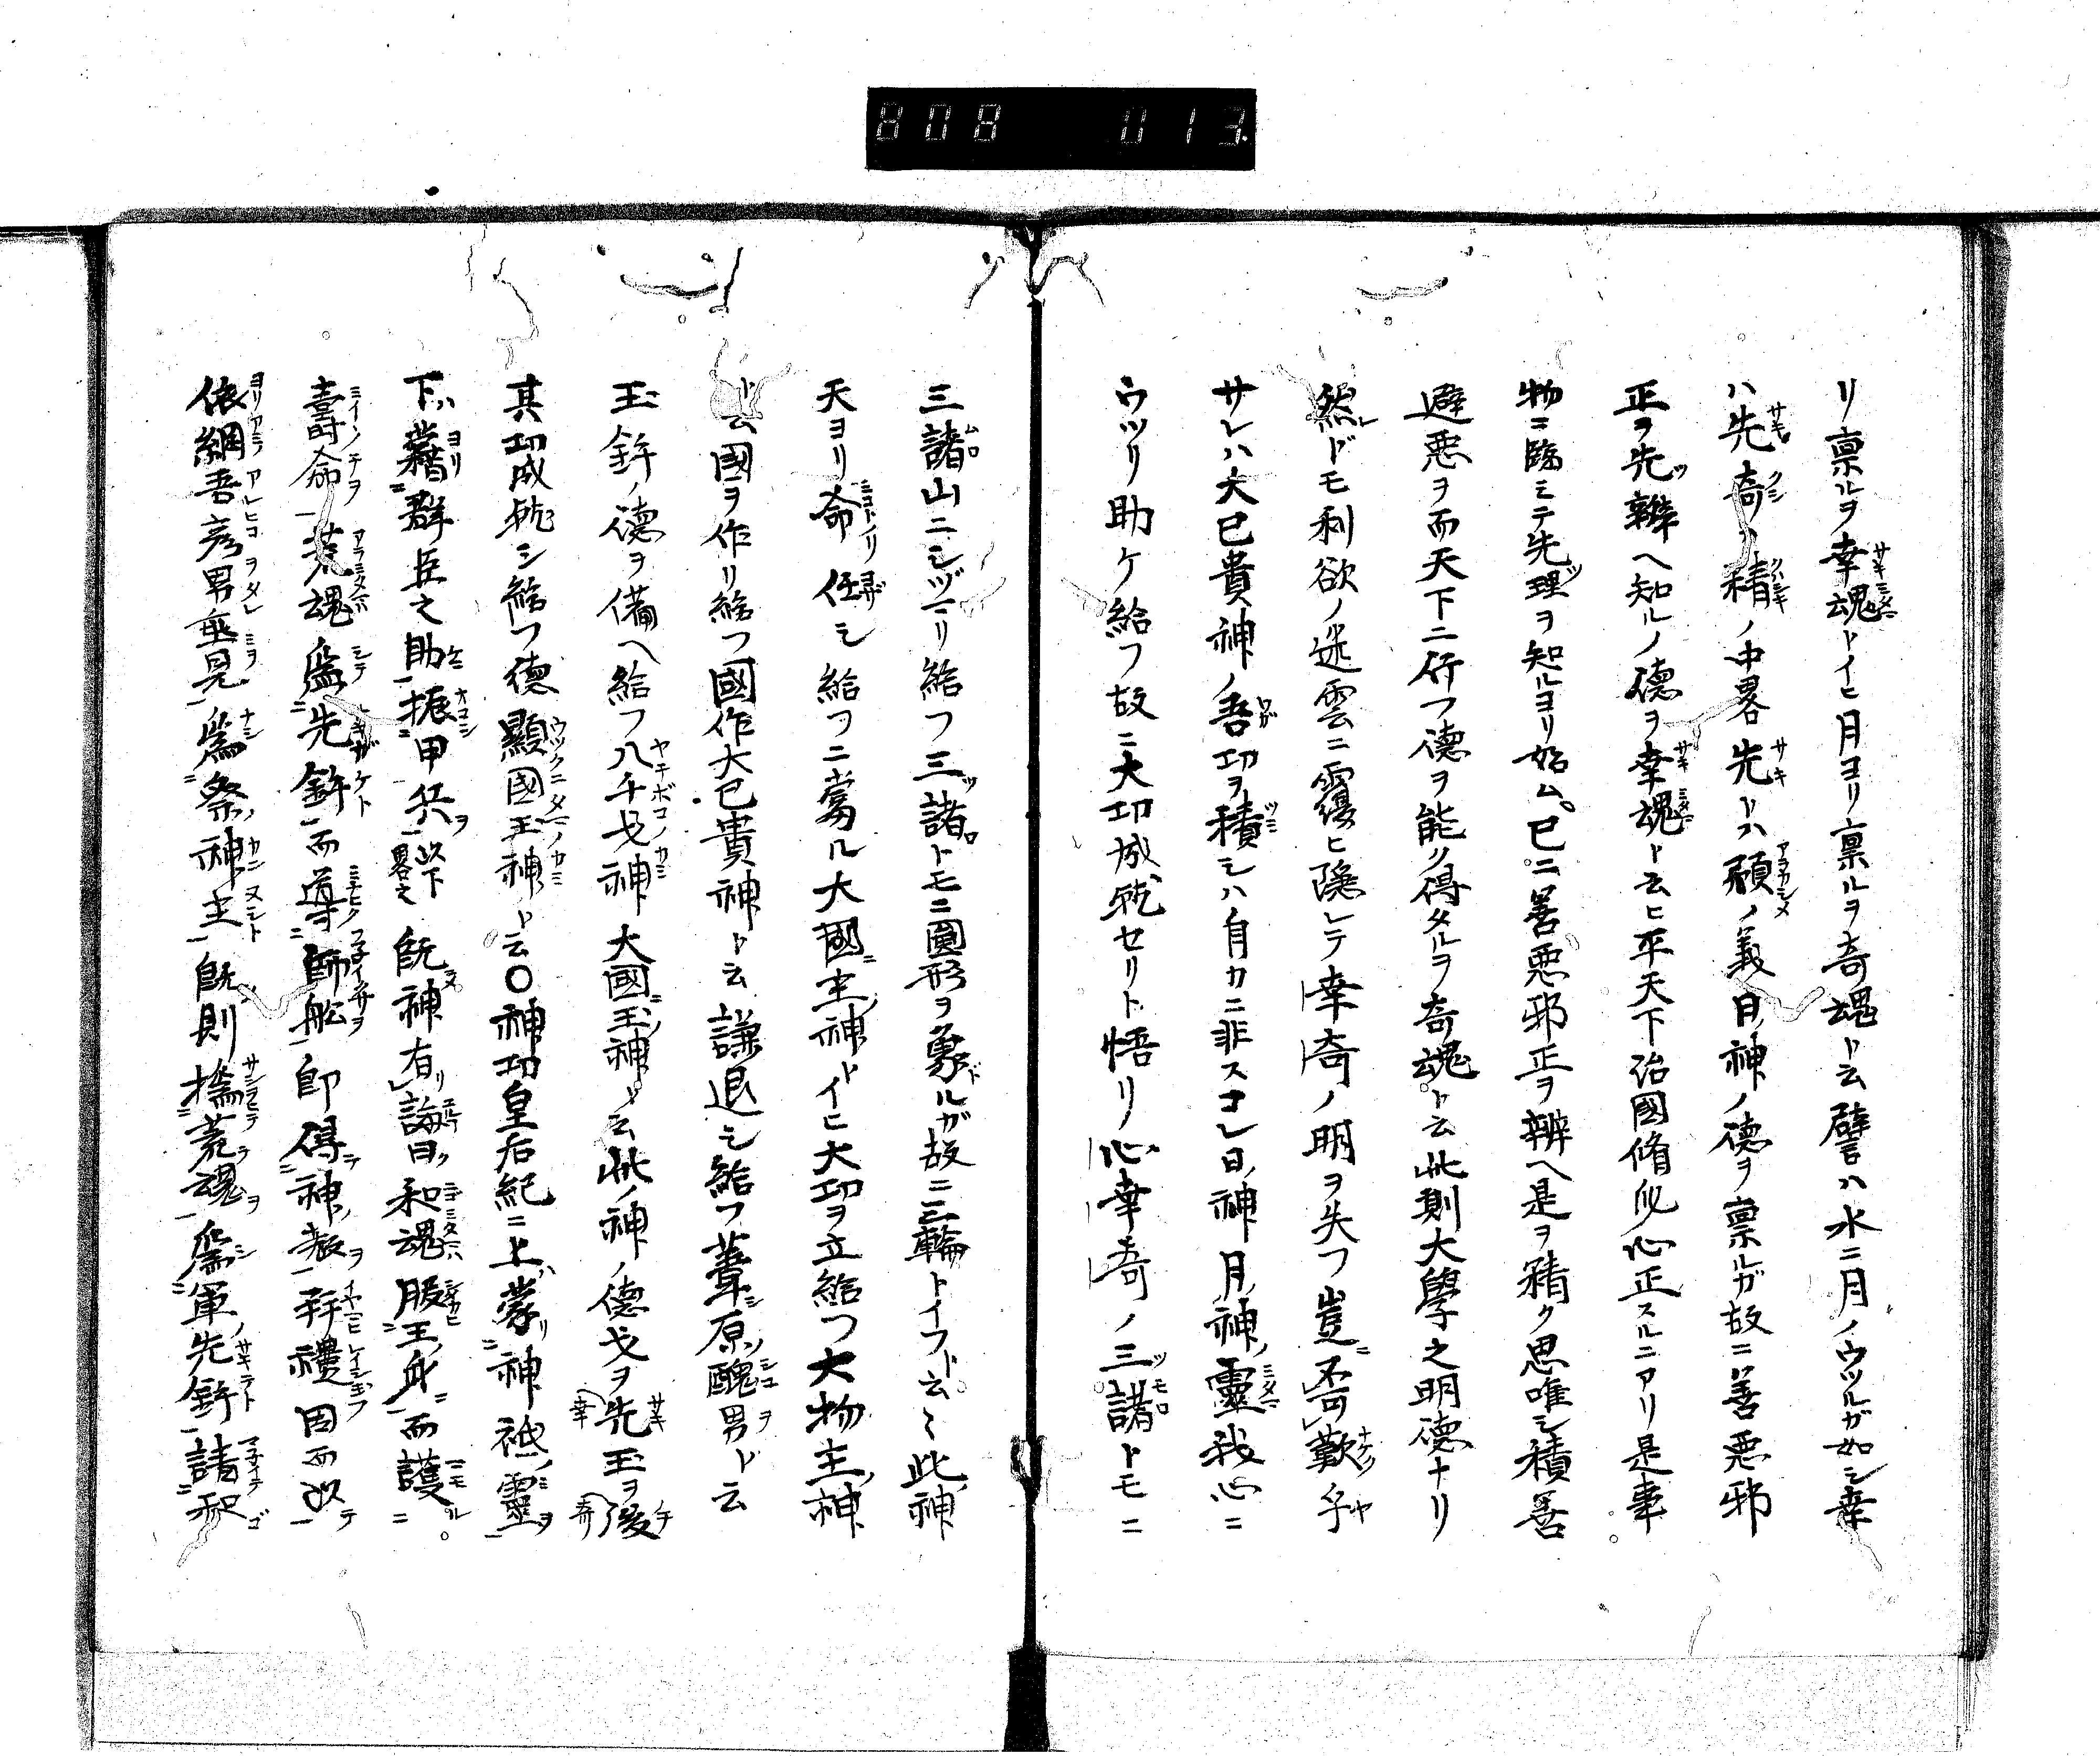 808 013
リ稟ルヲ幸魂トイヒ月ヨリ稟ルヲ奇魂ト云譬ハ水ニ月ノウツルガ如シ幸
ハ先奇ハ精ノ中畧先トハ預ノ義日神ノ德ヲ稟ルガ故ニ善悪邪
正ヲ先辨ヘ知ルノ德ヲ幸魂ト云ヒ平天下治國脩身心正スルニアリ是事
物ニ臨ミテ先理ヲ知ルヨリ始ム已ニ善悪邪正ヲ辨ヘ是ヲ精ク思唯シ積善
避悪ヲ而天下ニ行フ德ヲ能ク得タルヲ奇魂ト云此則大學之明德ナリ
然ドモ利欲ノ迷雲ニ覆ヒ隠レテ幸奇ノ明ヲ失フ豈不可歎乎
サレハ大已貴神ノ吾功ヲ積シハ自カニ非スコレ日神月神ノ靈我心ニ
ウツリ助ケ給フ故ニ大功成就セリト悟リ心幸奇ノ三諸トモニ
三諸山ニシヅマリ給フ三諸トモニ圓形ヲ象ルガ故ニ三輪トイフト云〻此神
天ヨリ命任シ給フニ當ル大國主神トイヒ大功ヲ立給フ大物主神
ト云國ヲ作リ給フ國作大已貴神ト云謙退シ給フ葦原醜男ト云
玉鉾ノ德ヲ備ヘ給フ八千戈神大國玉神ト云此ノ神ノ德戈ヲ先幸玉ヲ後奇
其功成就シ給フ德顯國玉神ト云〇神功皇后紀ニ上蒙神祇靈
下藉群臣之助振甲兵以下畧之既神有誨曰和魂服王身而護
壽命荒魂爲先鉾而導師舩即得神教拜禮因而以
依網吾彦男垂見爲祭神主既則撝荒魂爲軍先鉾請和